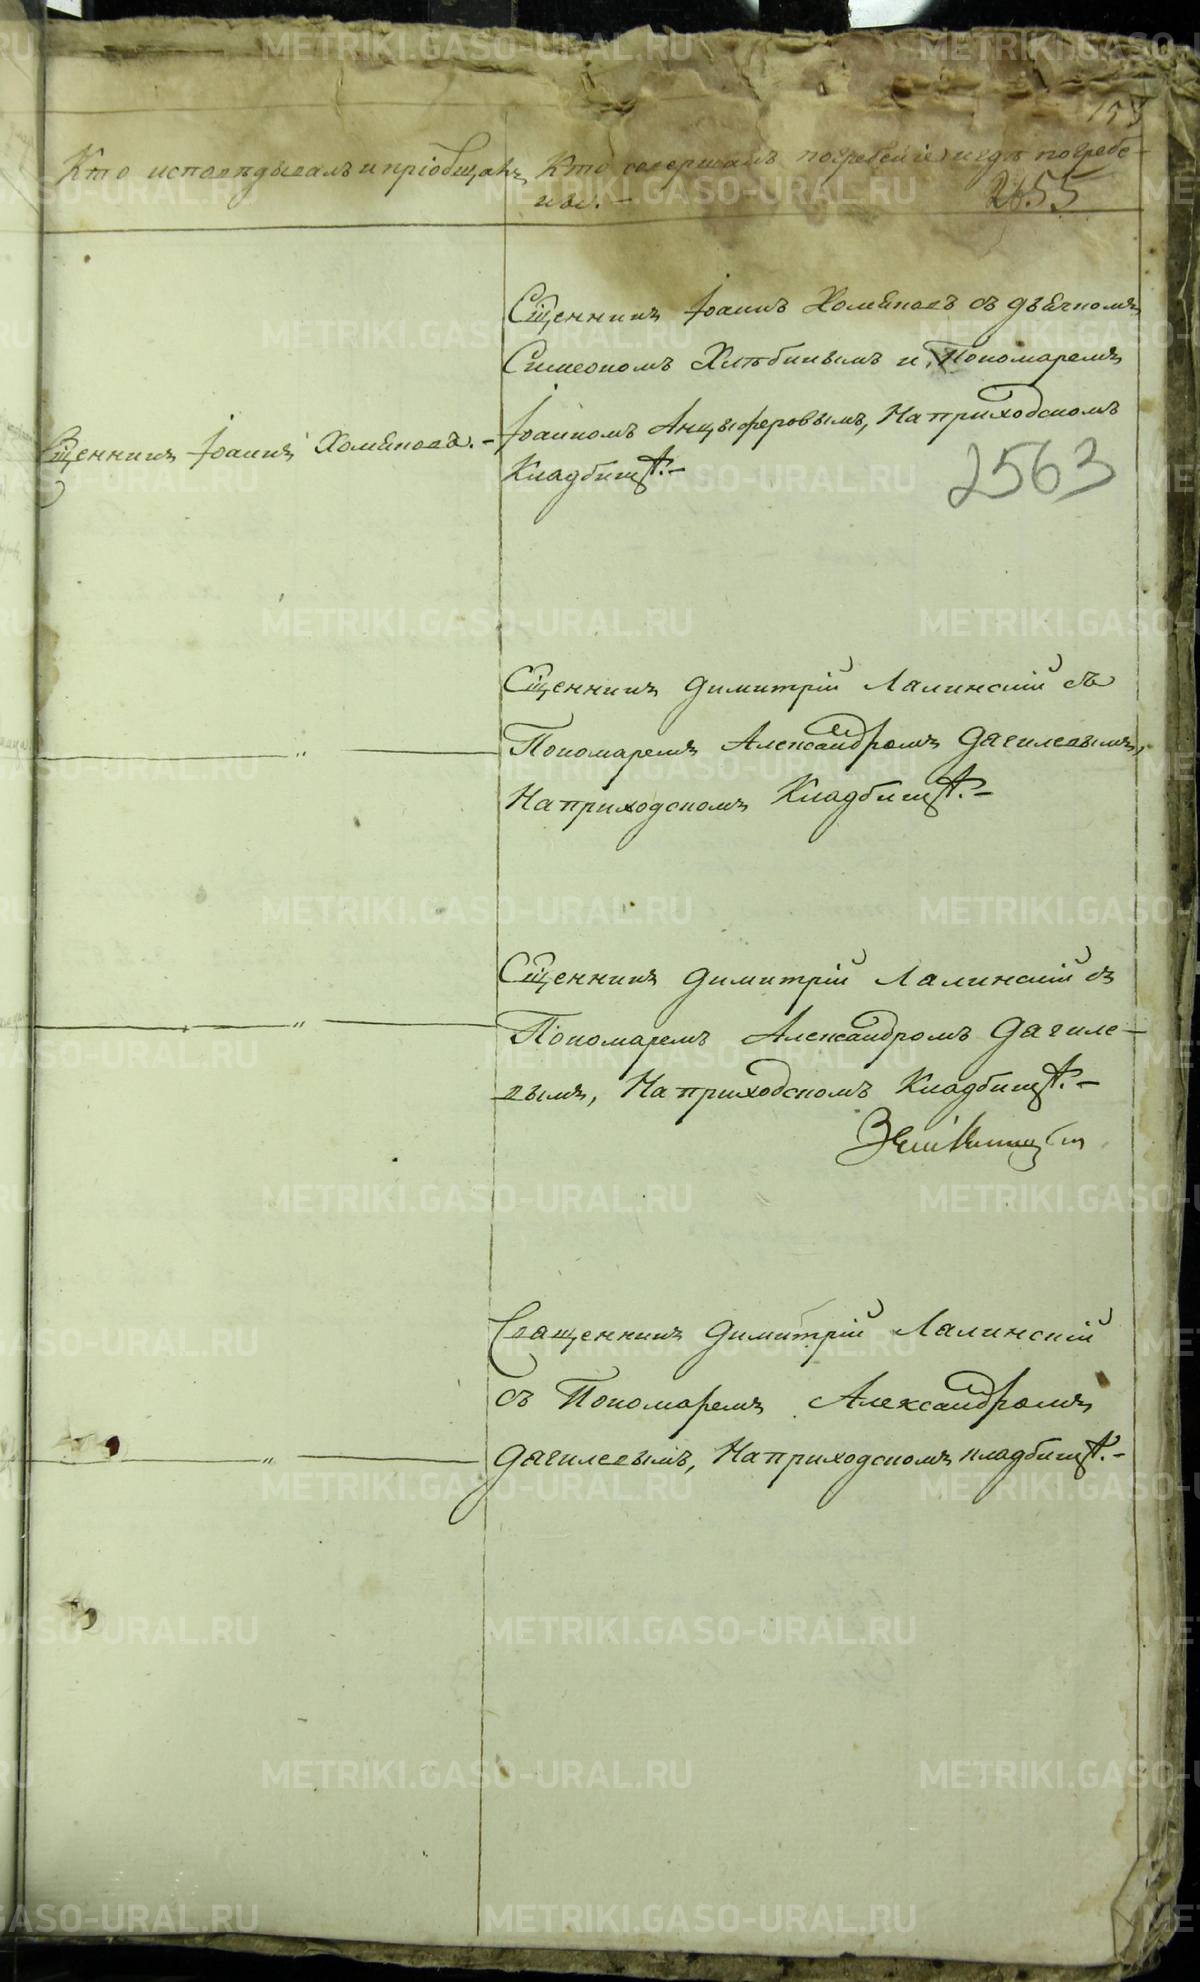 153
Кто исповѣдывалъ и пріобщалъ
Кто совершалъ погребеніе и гдѣ погребе-
ны.-
2655
Сщенникъ Іоаннъ Хомяковъ съ дьячкомъ
Симеономъ Хлѣбинымъ и Пономаремъ
Іоанномъ Анцыферовымъ, На приходскомъ
Кладбищѣ.-
Сщенникъ Іоаннъ Хомяковъ.-
2563
Сщенникъ Димитрій Лалинскій съ
Пономаремъ Александромъ Дягилевымъ,
На приходскомъ Кладбищѣ.-
Сщенникъ Димитрій Лалинскій съ
Пономаремъ Александромъ Дягиле-
вымъ, На приходскомъ Кладбищѣ.-
Священникъ Димитрій Лалинскій
съ Пономаремъ Александромъ
Дягилевымъ, На приходскомъ кладбищѣ.-
METRIKI.GASO-URAL.RU